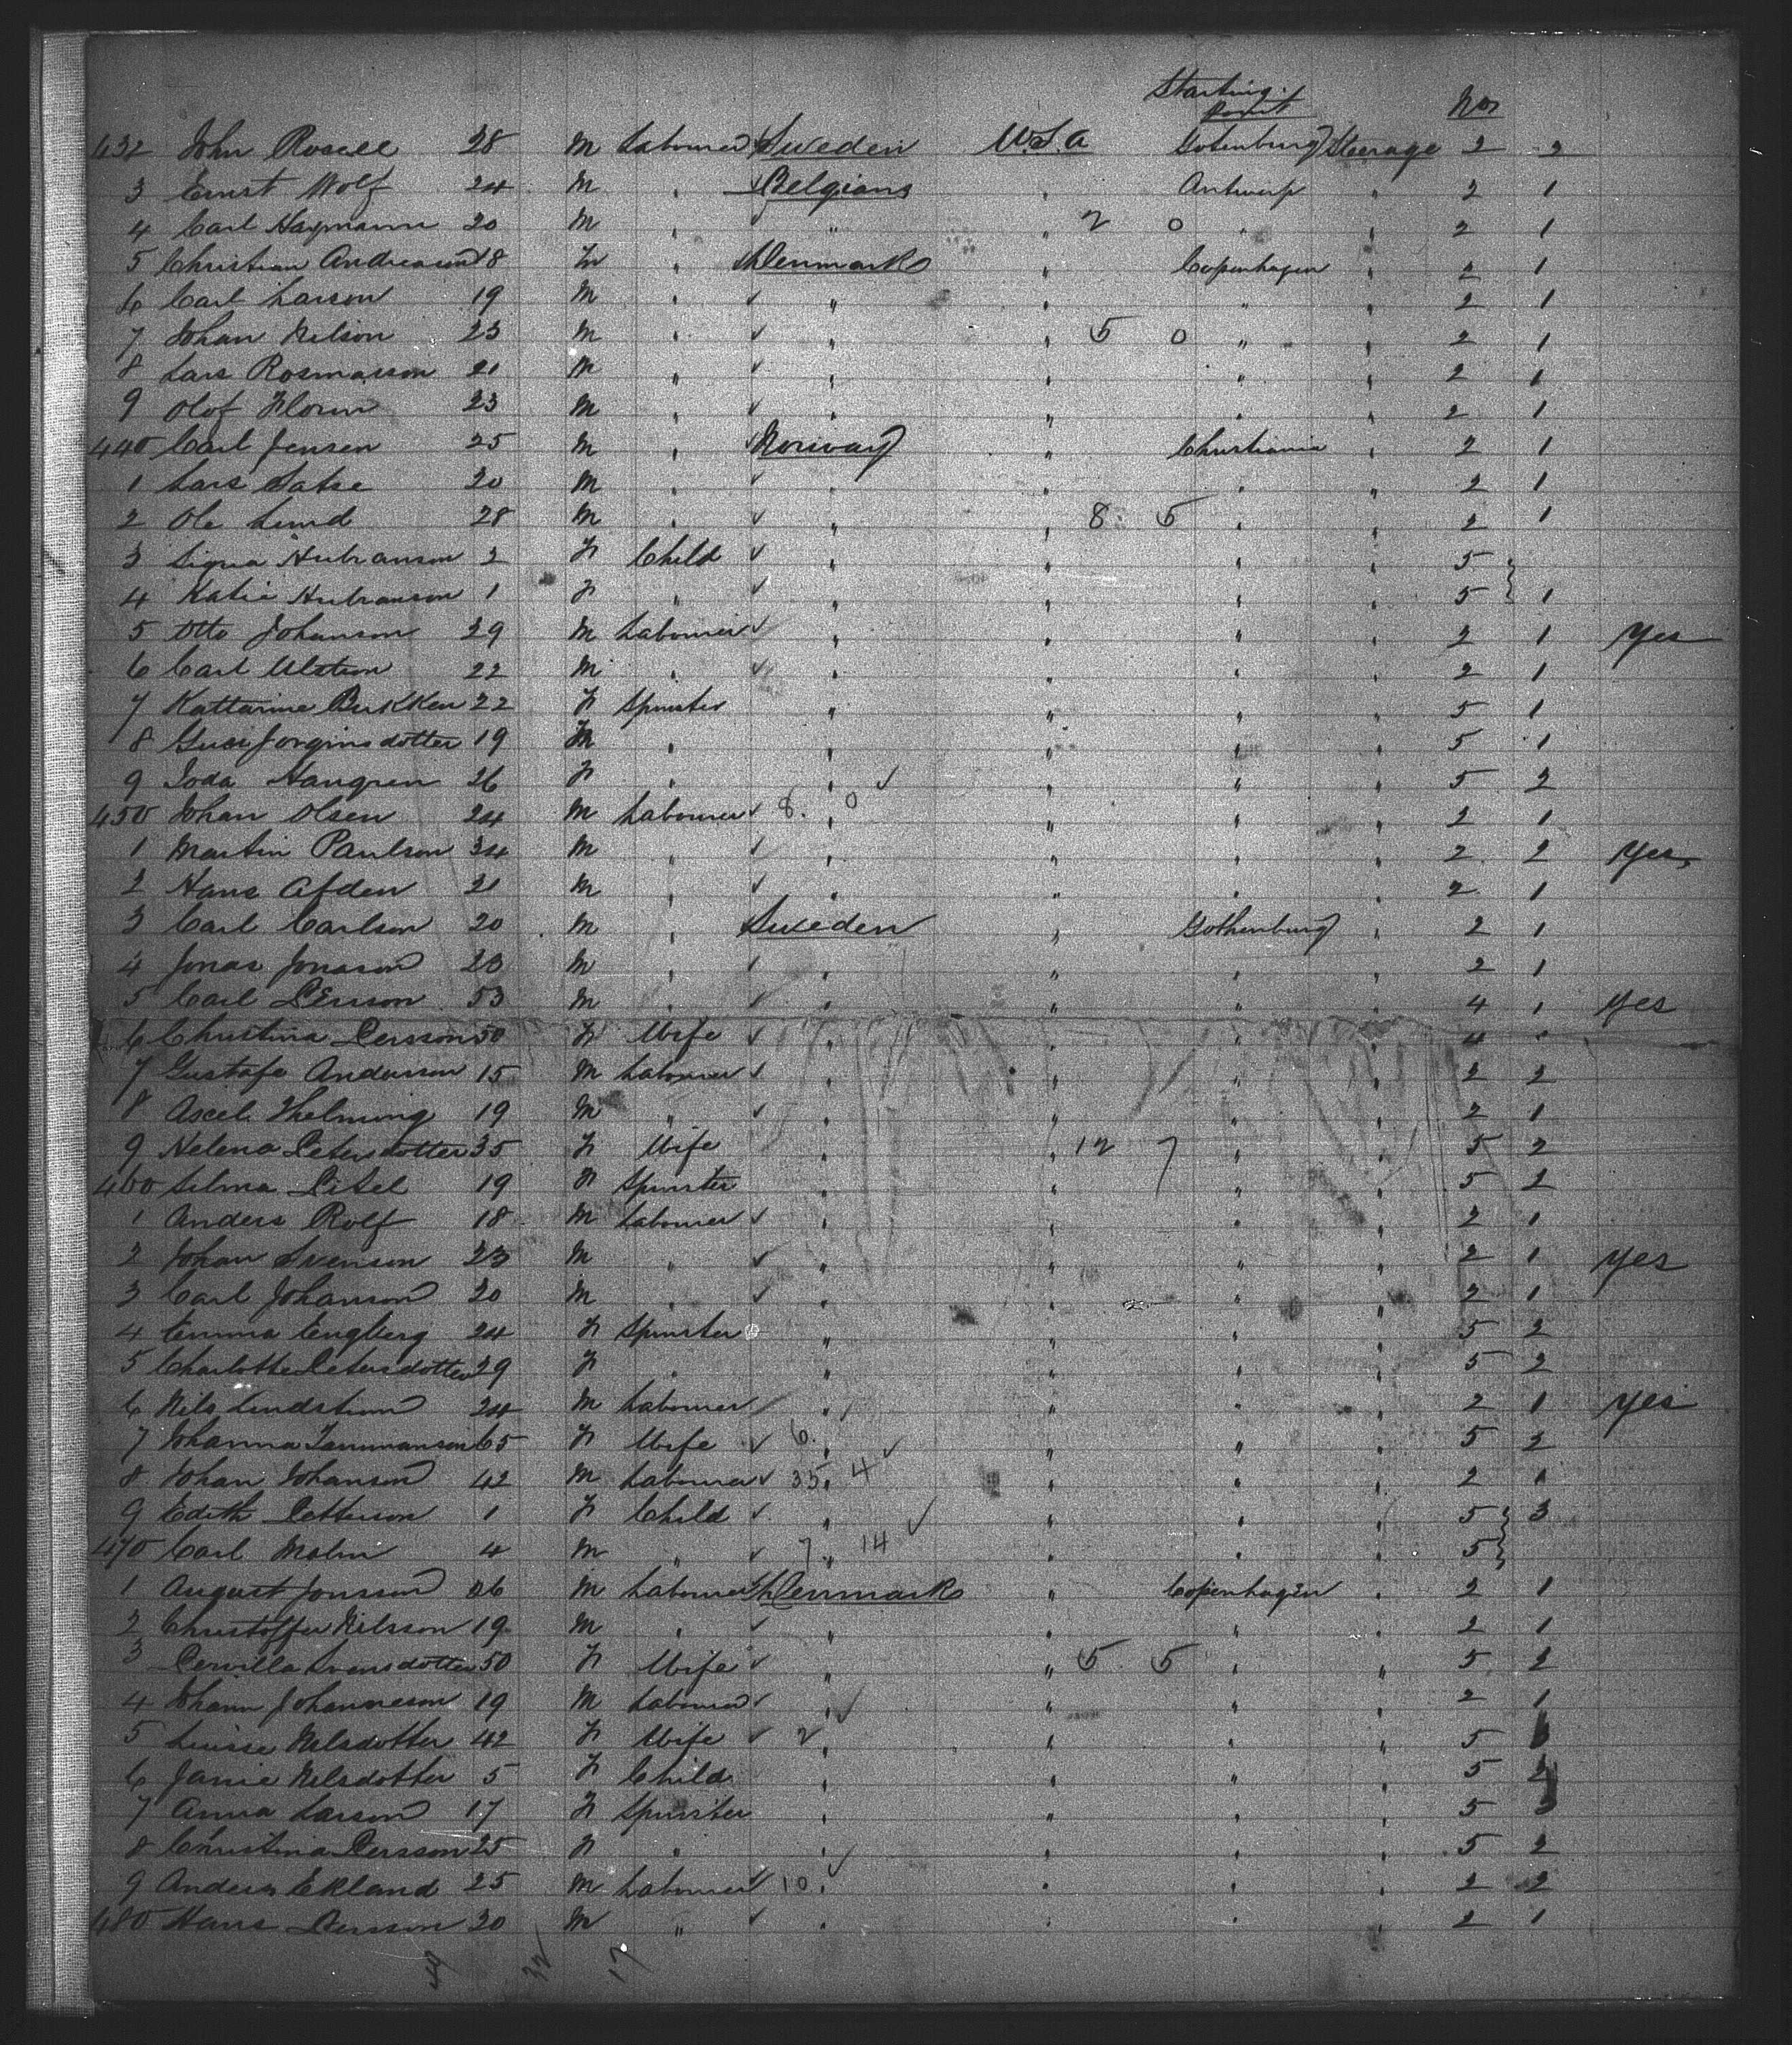 Starting
Point Nos
432 John Rosell 28 M Labourer Sweden U.S.A Gotenburg Steerage 2 2
3 Ernst Wolf 24 M " Belgians " Antwerp " 2 1
4 Carl Haymann 20 M " " " 2 0 " " 2 1
5 Christian Andreason 18 M " Denmark " Copenhagen " 2 1
6 Carl Larson 19 M " " " " " 2 1
7 Johan Nelson 23 M " " " 5 0 " " 2 1
8 Lars Rosmasson 21 M " " " " " 2 1
9 Olof 23 M " " " " " 2 1
440 Carl Jensen 25 M " Norway " Christiania " 2 1
1 Lars 20 M " " " " " 2 1
2 Ole Lund 28 M " " " 8 5 " " 2 1
3 2 F Child " " " " 5
4 Katie 1 F " " " " " 5 1
5 Otto Johanson 29 M Labourer " " " " 2 1 Yes
6 Carl 22 M " " " " " 2 1
7 Kattarine Bukken 22 F Spinster " " " " 5 1
8 Jorginsdotter 19 F " " " " " 5 1
9 26 F " " " " " 5 2
450 Johan Olsen 24 M Labourer 8 " 0 " " " 2 1
1 Martin Paulson 34 M " " " " " 2 2 Yes
2 Hans Afden 21 M " " " " " 2 1
3 Carl Carlson 20 M " Sweden " Gothenburg " 2 1
4 Jonas Jonason 23 M " " " " " 2 1
5 Carl Person 53 M " " " " " 4 1 Yes
6 Christina Persson 50 F Wife " " " " 4 "
7 Gustafe Andersson 15 M Labourer " " " " 2 2
8 Axcel 19 M " " " " " 2 1
9 Helena Petersdotter 35 F Wife " " 12 7 " " 5 2
460 Selma 19 F Spinster " " " " 5 2
1 Anders Rolf 18 M Labourer " " " " 2 1
2 Johan Svenson 23 M " " " " " 2 1 Yes
3 Carl Johanson 20 M " " " " " 2 1
4 Emma Engberg 24 F Spinster " " " " 5 2
5 Charlotte Petersdotter 29 F " " " " " 5 2
6 Nils Lindstrom 24 M Labourer " " " " 2 1 Yes
7 Johanna 65 F Wife 6 " " " " 5 2
8 Johan Johanson 42 M Labourer 35 " 4 " " " 2 1
9 Edith Petterson 1 F Child " " " " 5 3
470 Carl Malm 4 M " 7 " 14 " " " 5
1 August Jonsson 26 M Labourer Denmark " Copenhagen " 2 1
2 Christoffer Nilsson 19 M " " " " " 2 1
3 Pernilla Svensdotter 50 F Wife " " 5 5 " " 5 2
4 Johann Johanneson 19 M Labourer " " " " 2 1
5 Nilsdotter 42 F Wife 2 " " " " 5
6 Janie Nilsdotter 5 F Child " " " " 5
7 Anna Larson 17 F Spinster " " " " 5
8 Christina Persson 25 F " " " " " 5 2
9 Anders Ekland 25 M Labourer 10 " " " " 2 2
480 Hans Persson 20 M " " " " " 2 1
32 17